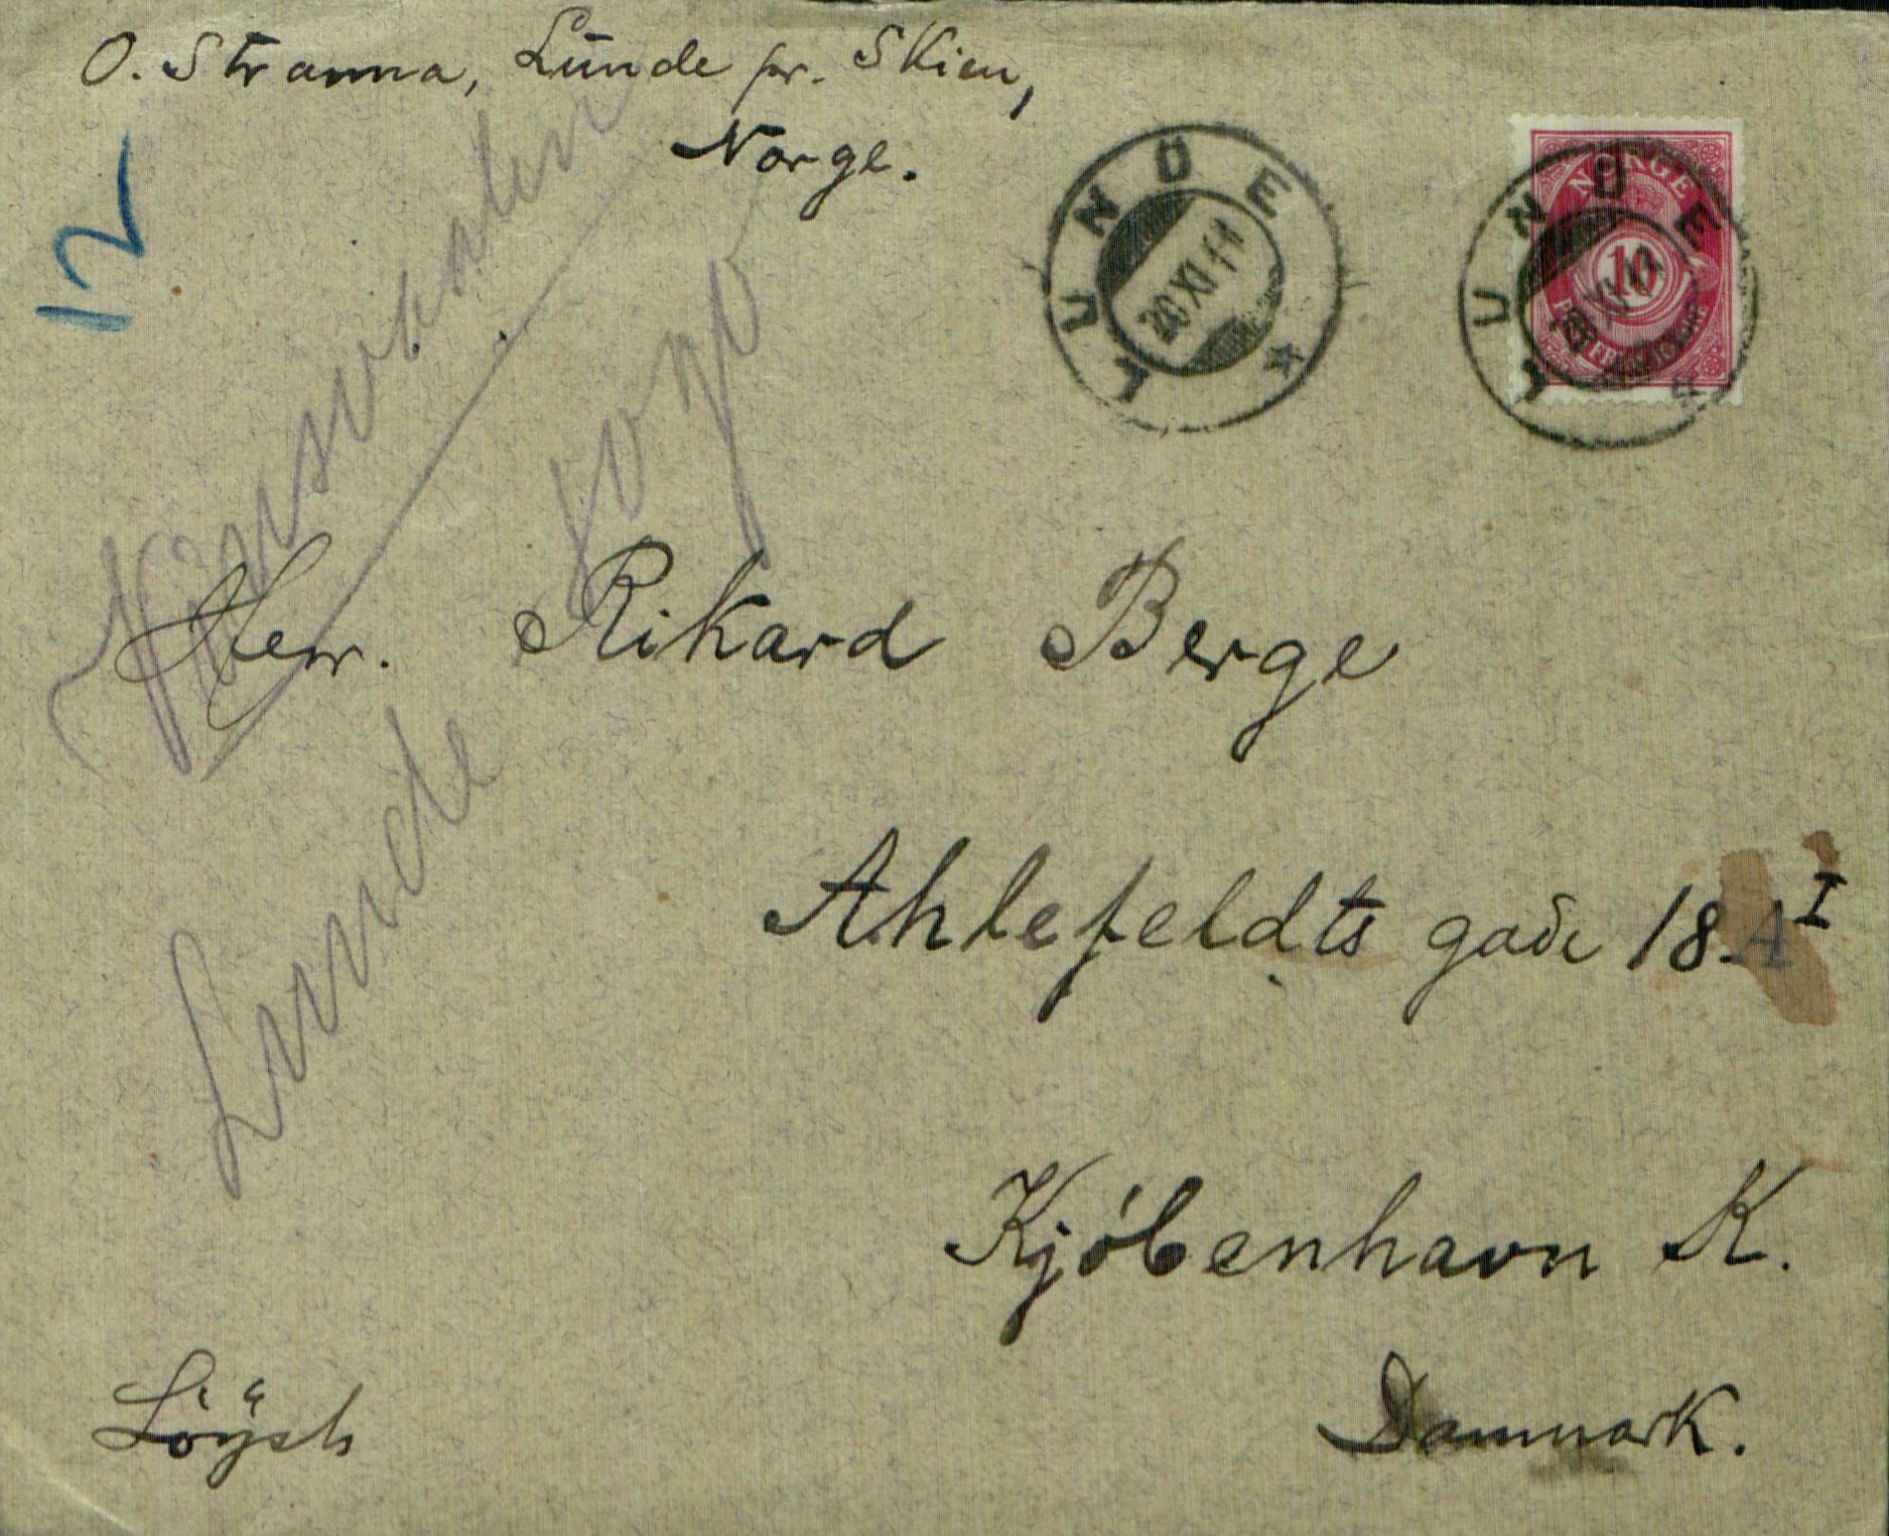 O. Stranna, Lunde pr. Skien,
Norge.
12
LUNDE
20 XI 11
LUNDE
XI 11
NORGE
10
Herr. Rikard Berge
Ahlefeldts gade 18 A I
Kjöbenhavn K.
Danmark.
Lunde